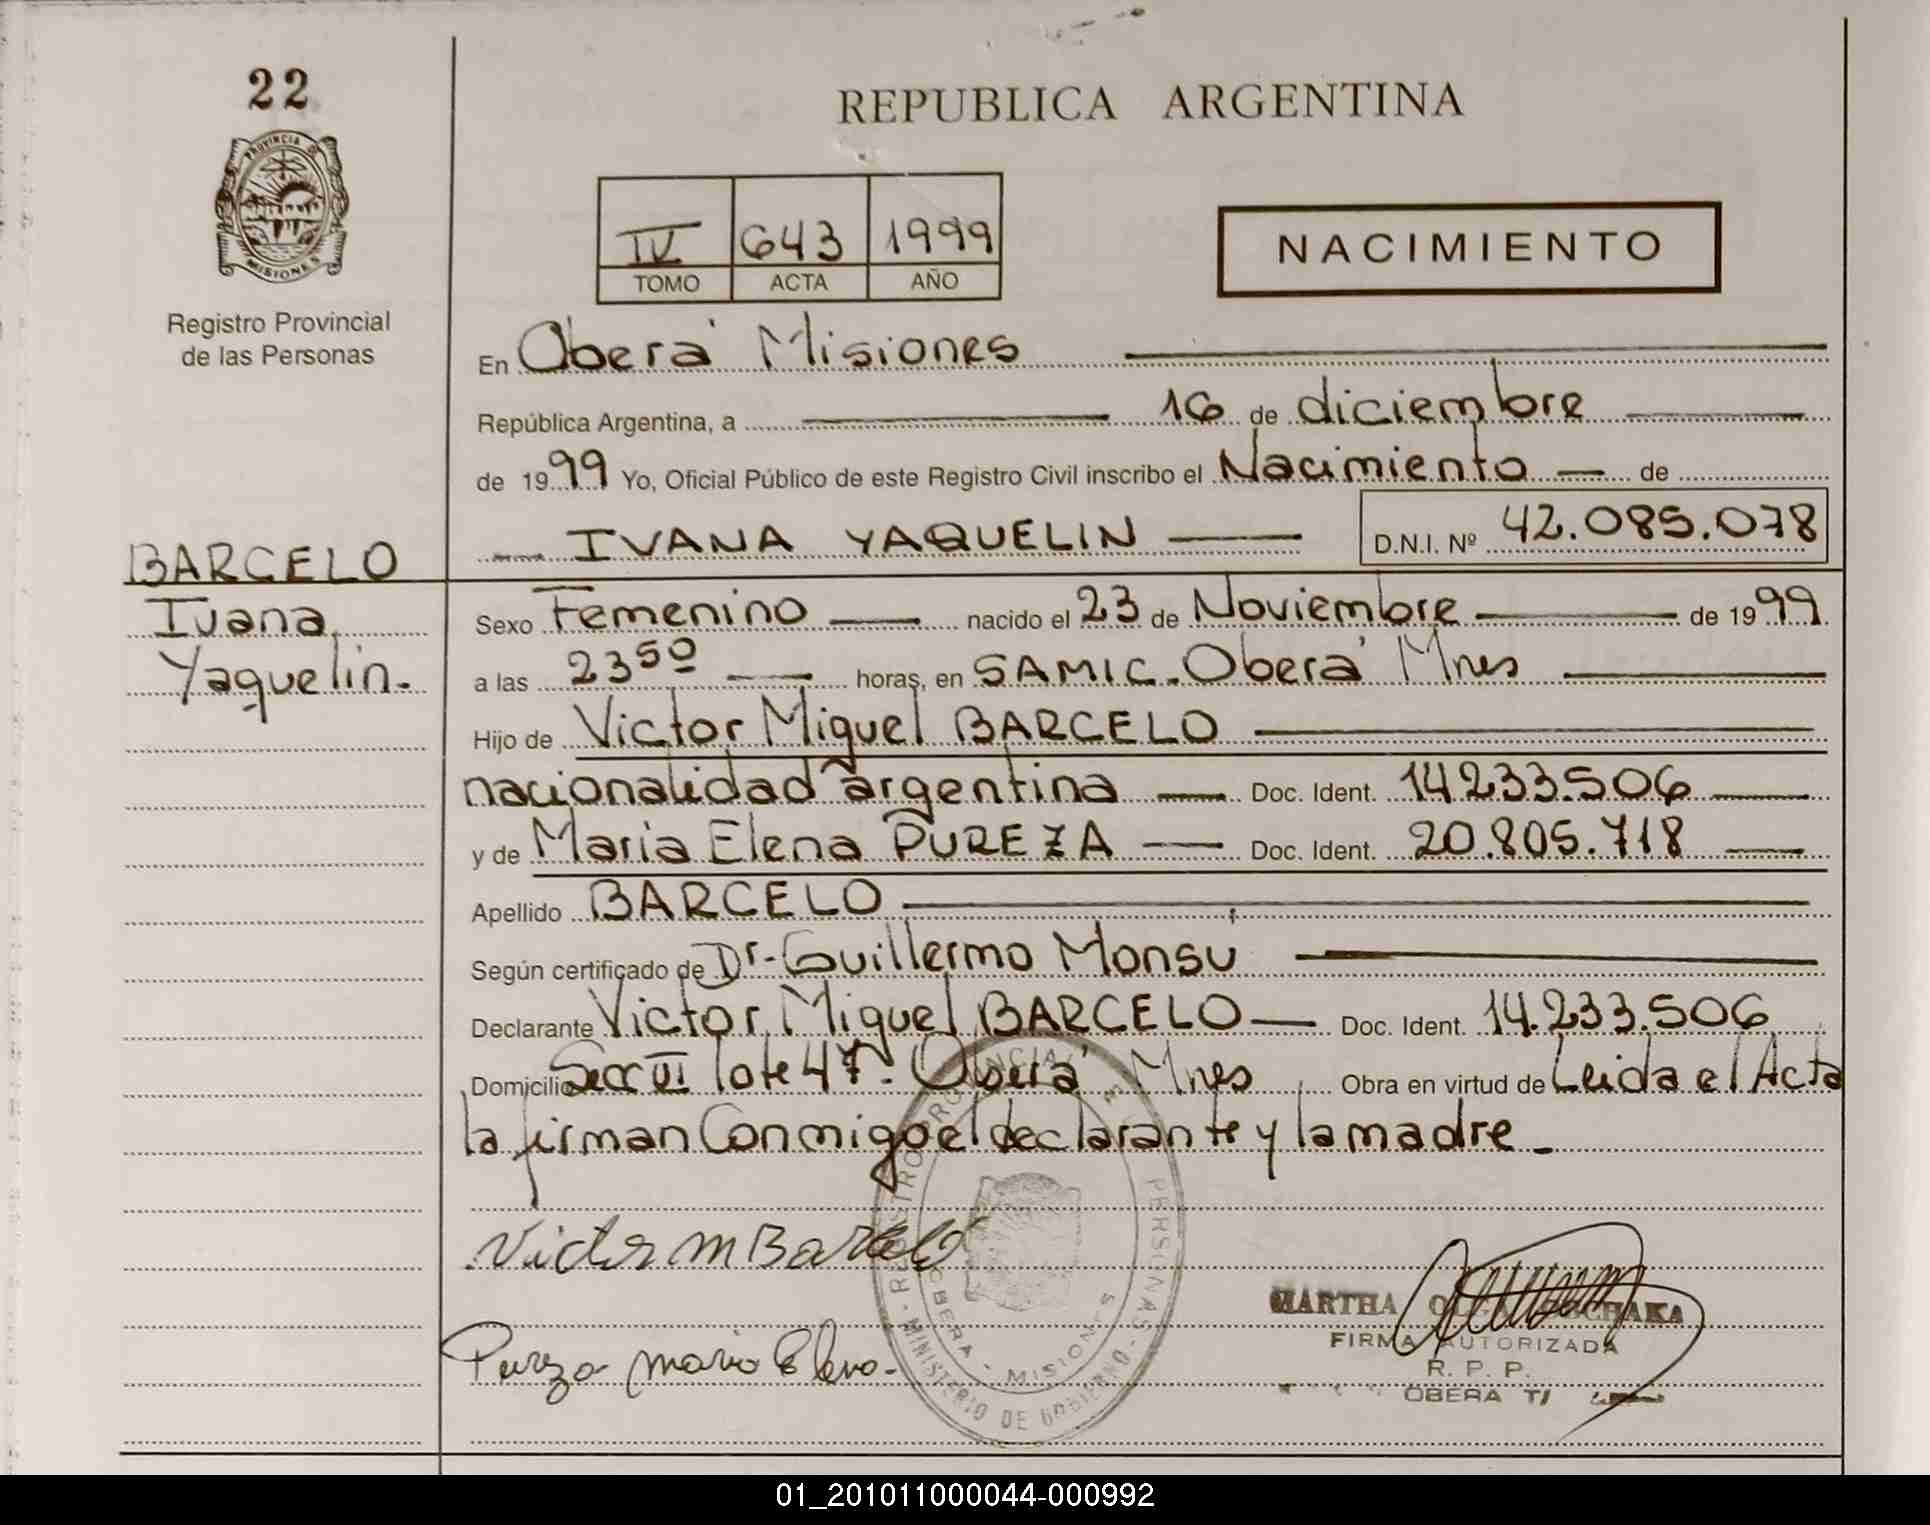 22
REPUBLICA ARGENTINA
PROVINCIA DE
MISIONES
IV 643 1999
TOMO ACTA AÑO
NACIMIENTO
Registro Provincial
de las Personas
En Oberá Misiones
República Argentina, a 16 de diciembre
de 1999 Yo, Oficial Público de este Registro Civil inscribo el Nacimiento de
IVANA YAQUELIN D.N.I. Nº 42.085.078
BARCELO
Ivana
Yaquelin.
Sexo Femenino nacido el 23 de Noviembre de 1999
a las 23 50 horas, en SAMIC. Oberá Mnes
Hijo de Victor Miguel BARCELO
nacionalidad argentina Doc. Ident. 14.233.506
y de Maria Elena PUREZA Doc. Ident. 20.805.718
Apellido BARCELO
Según certificado de Dr. Guillermo Monsu
Declarante Victor Miguel BARCELO Doc. Ident. 14.233.506
Domicilio Secc lote 47. Oberá Mnes Obra en virtud de Leida el Acta
la firman Conmigo el declarante y la madre
Victor M Barcelo
Pureza Maria Elena
REGISTRO PROVINCIAL DE PERSONAS
MINISTERIO DE GOBIERNO
OBERA - MISIONES
MARTHA OLGA
FIRMA AUTORIZADA
R. P. P.
OBERA
01_201011000044-000992